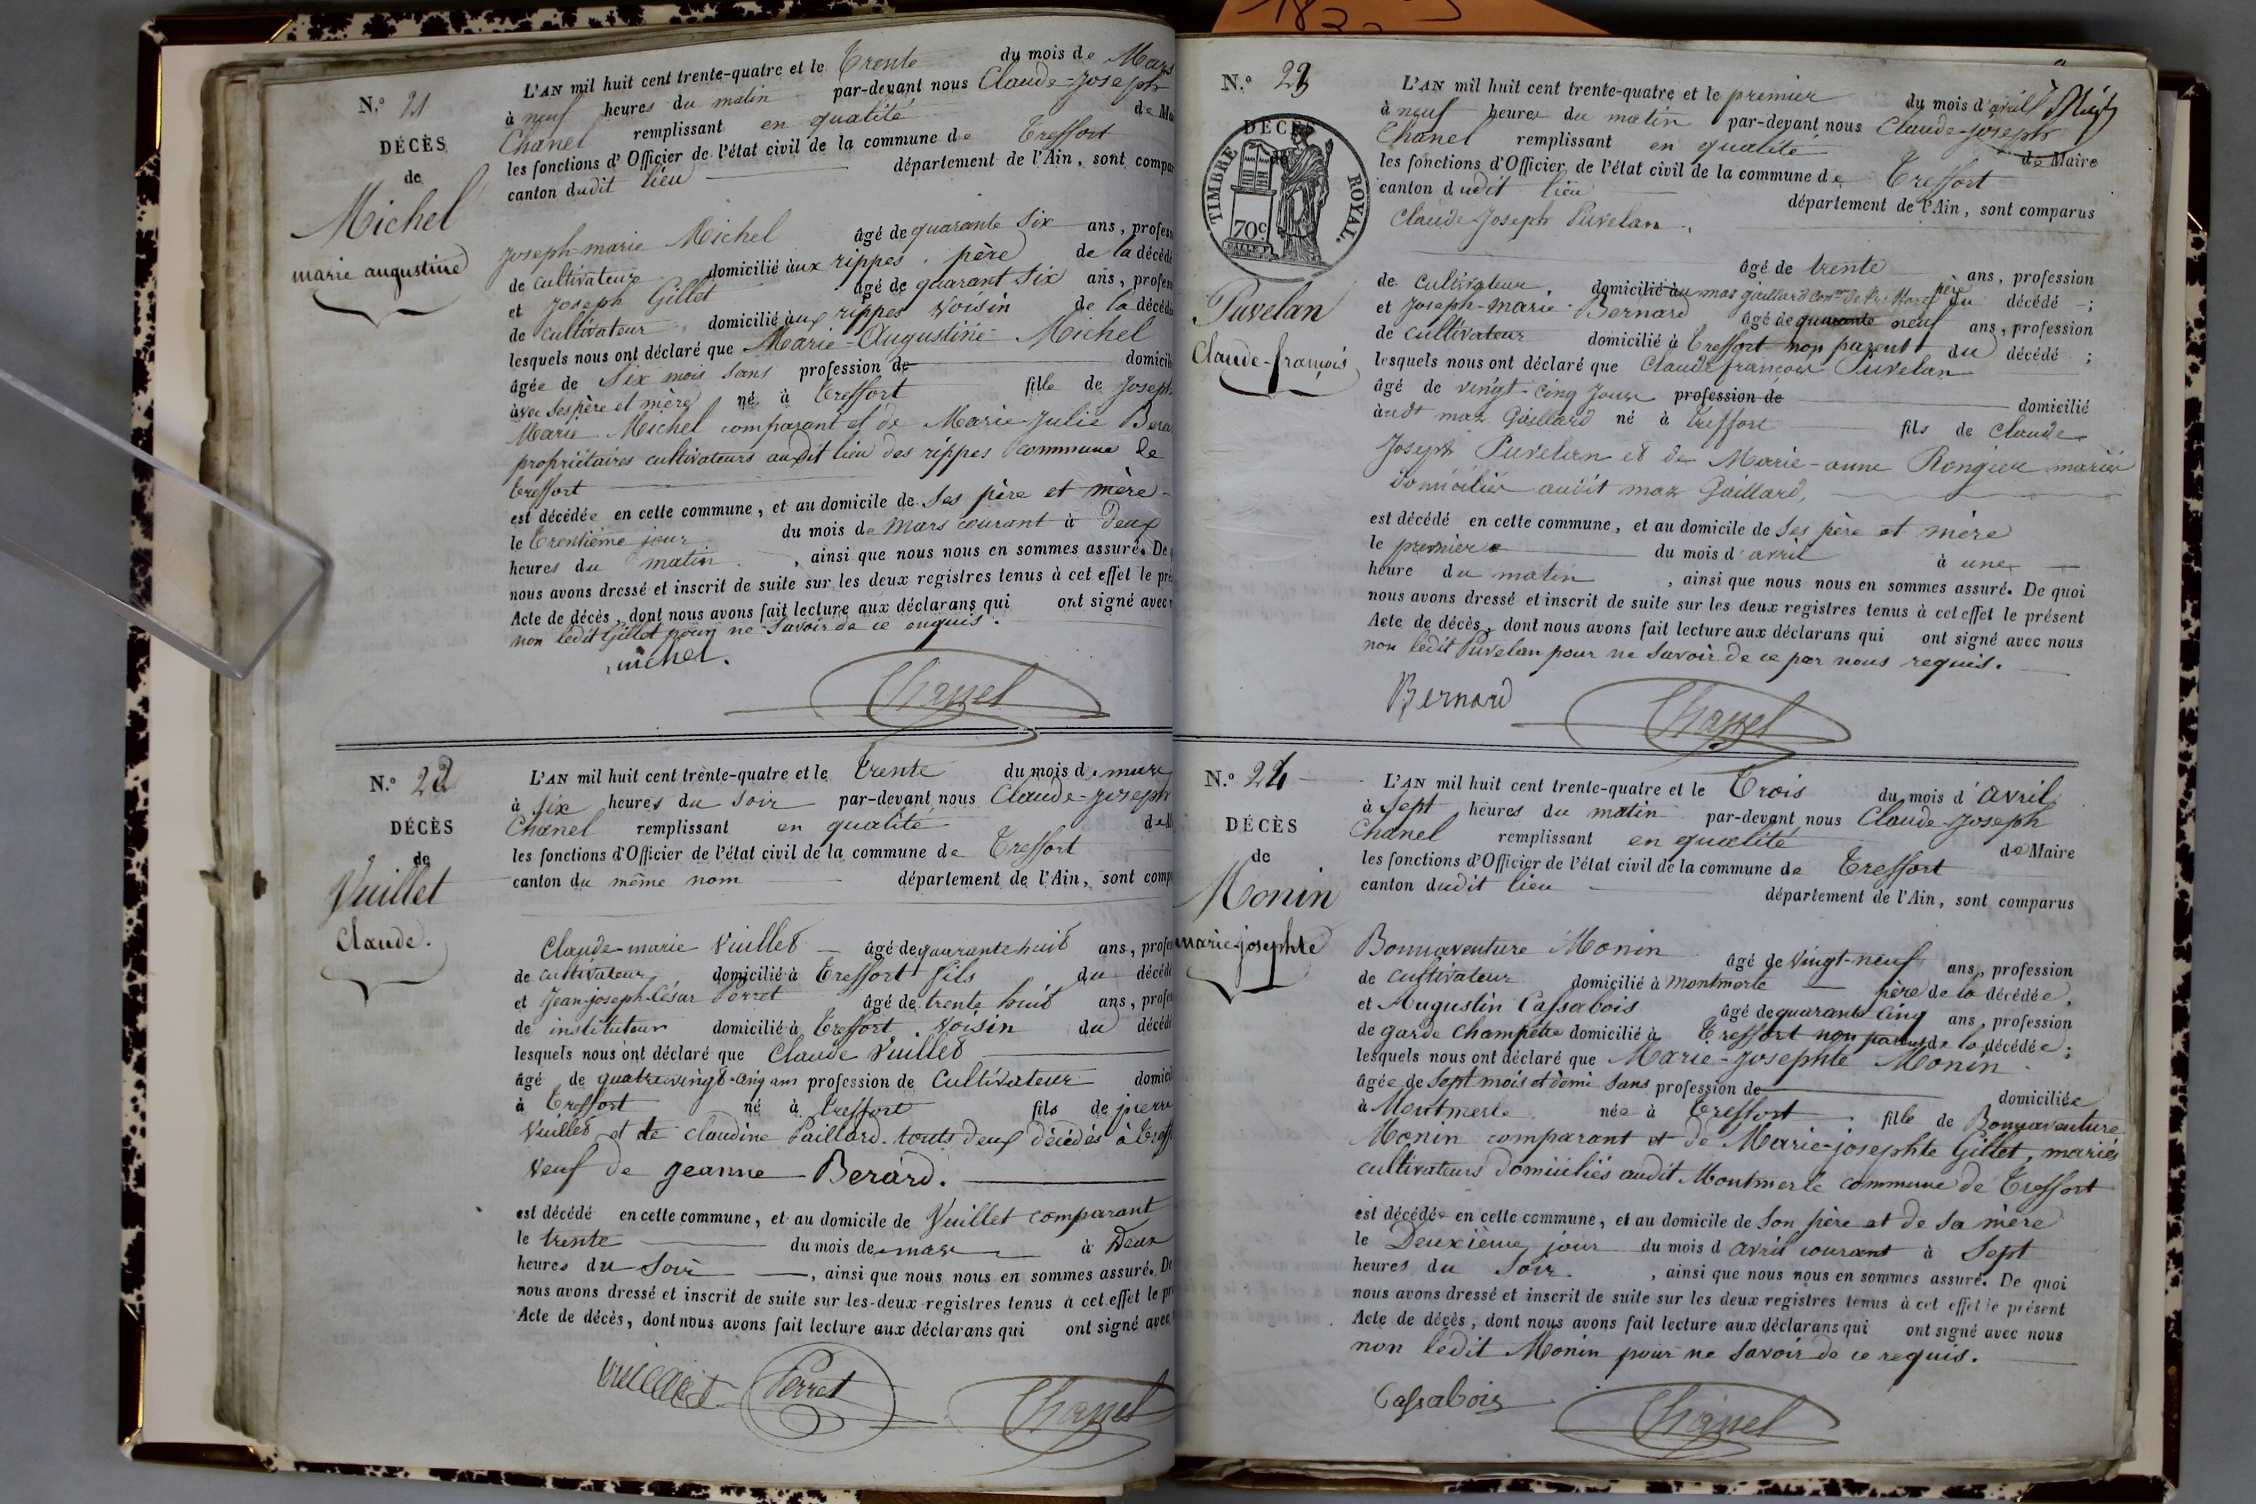 N.º 21
DÉCÈS
de
Michel
marie augustine
L'AN mil huit cent trente-quatre et le Trente du mois de Mars
à neuf heures du matin par-devant nous Claude-Joseph
Chanel remplissant en qualité de Ma
les fonctions d'Officier de l'état civil de la commune de Treffort
canton dudit lieu département de l'Ain, sont compar
Joseph-marie Michel âgé de quarante six ans, profess
de cultivateur domicilié aux rippes. père de la décédé
et Joseph Gillet âgé de quarant six ans, profess
de cultivateur domicilié aux rippes voisin de la décédé
lesquels nous ont déclaré que Marie-Augustine Michel
âgée de six mois sans profession de domicili
avec ses père et mère né à Treffort fille de Joseph
Marie Michel comparant et de Marie Julie Bera
propriétaires cultivateurs audit lieu des rippes commune de
Treffort
est décédée en cette commune, et au domicile de ses père et mère
le Trentième jour du mois de Mars courant à Deux
heures du matin, ainsi que nous nous en sommes assuré. De
nous avons dressé et inscrit de suite sur les deux registres tenus à cet effet le pré
Acte de décès, dont nous avons fait lecture aux déclarans qui ont signé avec
non ledit Gillet pour ne savoir de ce enquis.
michel.
Chanel
N.º 22
DÉCÈS
de
Vuillet
Claude.
L'AN mil huit cent trente-quatre et le trente du mois de mars
à six heures du soir par-devant nous Claude-Joseph
Chanel remplissant en qualité de M
les fonctions d'Officier de l'état civil de la commune de Treffort
canton du même nom département de l'Ain, sont comp
Claude-marie Vuillet âgé de quarante huit ans, profes
de cultivateur domicilié à Treffort fils du décédé
et Jean-joseph-César Perret âgé de trente huit ans, profes
de instituteur domicilié à Treffort. voisin du décédé
lesquels nous ont déclaré que Claude Vuillet
âgé de quatre vingt-cinq ans profession de Cultivateur domici
à Treffort né à treffort fils de pierre
Vuillet et de claudine Paillard. touts deux décédés à Treff
veuf de Jeanne Berard.
est décédé en cette commune, et au domicile de Vuillet comparant
le trente du mois de mars à Deux
heures du Soir, ainsi que nous nous en sommes assuré. De
nous avons dressé et inscrit de suite sur les deux registres tenus à cet effet le pr
Acte de décès, dont nous avons fait lecture aux déclarans qui ont signé avec
Perret
Chanel
N.º 23
DÉCÈS
TIMBRE ROYAL.
70c
Puvelan
Claude-françois
L'AN mil huit cent trente-quatre et le premier du mois d'avril
à neuf heures du matin par-devant nous Claude-Joseph
Chanel remplissant en qualité de Maire
les fonctions d'Officier de l'état civil de la commune de Treffort
canton dudit lieu département de l'Ain, sont comparus
Claude Joseph Puvelan
âgé de trente ans, profession
de cultivateur. domicilié au mas gaillard père du décédé;
et Joseph-marie Bernard âgé de quarante neuf ans, profession
de cultivateur domicilié à Treffort non parent du décédé;
lesquels nous ont déclaré que Claude françois Puvelan
âgé de vingt-cinq jours profession de domicilié
audt maz Gaillard né à treffort fils de Claude
Joseph Puvelan et de Marie-anne Rongier mariés
domiciliés audit maz Gaillard,
est décédé en cette commune, et au domicile de ses père et mère
le premier du mois d'avril à une
heure du matin, ainsi que nous nous en sommes assuré. De quoi
nous avons dressé et inscrit de suite sur les deux registres tenus à cet effet le présent
Acte de décès, dont nous avons fait lecture aux déclarans qui ont signé avec nous
non ledit Puvelan pour ne savoir de ce par nous requis.
Bernard
Chanel
N.º 24
DÉCÈS
de
Monin
marie-josephte
L'AN mil huit cent trente-quatre et le Trois du mois d'avril
à sept heures du matin par-devant nous Claude-Joseph
Chanel remplissant en qualité de Maire
les fonctions d'Officier de l'état civil de la commune de Treffort
canton dudit lieu département de l'Ain, sont comparus
Bonnaventure Monin âgé de vingt-neuf ans, profession
de cultivateur domicilié à montmerle père de la décédée,
et Augustin Cassabois âgé de quarante cinq ans, profession
de garde champêtre domicilié à Treffort non parent de la décédée;
lesquels nous ont déclaré que Marie-Josephte Monin
âgée de sept mois et demi sans profession de domiciliée
à Montmerle née à Treffort fille de Bonnaventure
Monin comparant et de Marie-josephte Gillet, mariés
cultivateurs domiciliés audit Montmerle commune de Treffort
est décédée en cette commune, et au domicile de son père et de sa mère
le Deuxième jour du mois d avril courant à Sept
heures du Soir, ainsi que nous nous en sommes assuré. De quoi
nous avons dressé et inscrit de suite sur les deux registres tenus à cet effet le présent
Acte de décès, dont nous avons fait lecture aux déclarans qui ont signé avec nous
non ledit Monin pour ne savoir de ce requis.
Cassabois
Chanel